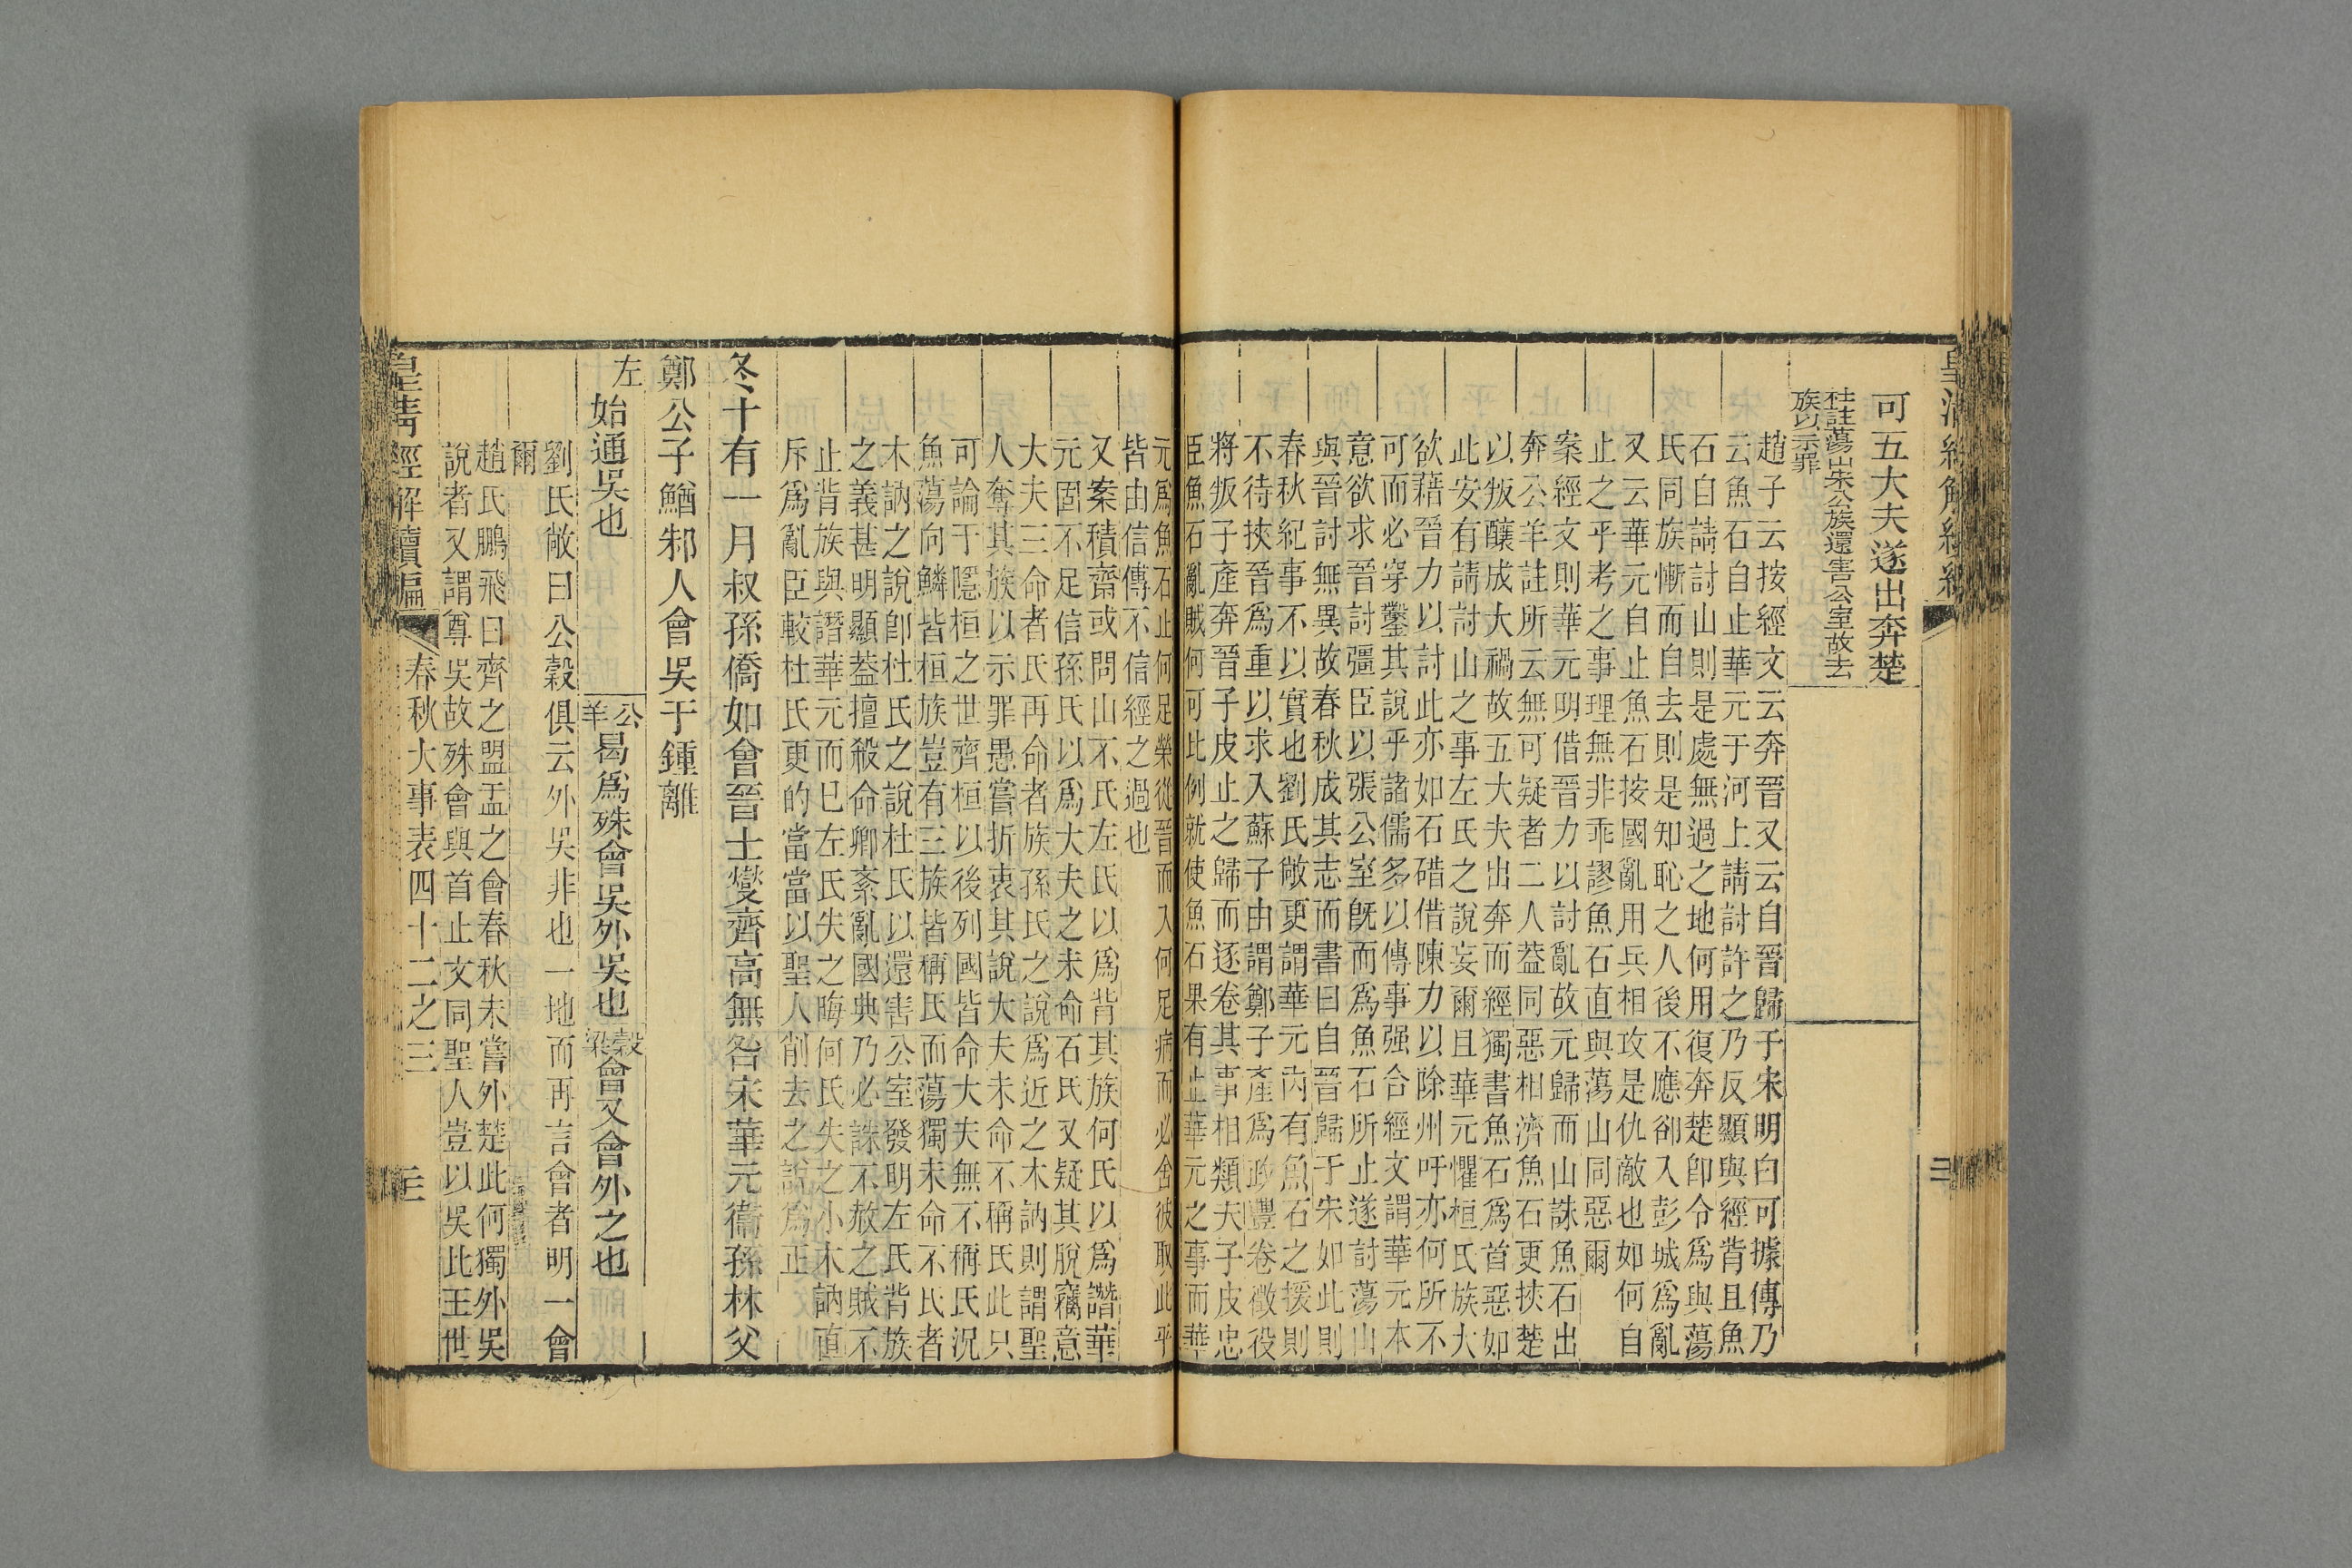 可五大夫遂出奔楚
杜註蕩山宋公族還害公室故去
族以示罪
趙子云按經文云奔晉又云自晉歸于宋明白可據傳乃
云魚石自止華元于河上請討許之乃反顯與經背且魚
石自請討山則是處無過之地何用復奔楚卽令爲與蕩
氏同族慚而自去則是知恥之人後不應卻入彭城爲亂
又云華元自止魚石按國亂用兵相攻是仇敵也如何自
止之乎考之事理無非乖謬魚石直與蕩山同惡爾
案經文則華元明借晉力以討亂故元歸而山誅魚石出
奔公羊註所云無可疑者二人葢同惡相濟魚石更挾楚
以叛釀成大禍故五大夫出奔而經獨書魚石爲首惡如
此安有請討山之事左氏之說妄爾且華元懼桓氏族大
欲藉晉力以討此亦如石碏借陳力以除州吁亦何所不
可而必穿鑿其說乎諸儒多以傳事强合經文謂華元本
意欲求晉討彊臣以張公室旣而爲魚石所止遂討蕩山
與晉討無異故春秋成其志而書曰自晉歸于宋如此則
春秋紀事不以實也劉氏敞更謂華元內有魚石之援則
不待挾晉爲重以求入蘇子由謂鄭子產爲政豐卷徵役
將叛子產奔晉子皮止之歸而逐卷其事相類夫子皮忠
臣魚石亂賊何可此例就使魚石果有止華元之事而華
元爲魚石止何足榮從晉而入何足病而必舍彼取此乎
皆由信傳不信經之過也
又案積齋或問山不氏左氏以爲背其族何氏以爲譖華
元固不足信孫氏以爲大夫之未命石氏又疑其脫竊意
大夫三命者氏再命者族孫氏之說爲近之木訥則謂聖
人奪其族以示罪愚嘗折衷其說大夫未命不稱氏此只
可論于隱桓之世齊桓以後列國皆命大夫無不稱氏況
魚蕩向鱗皆桓族豈有三族皆稱氏而蕩獨未命不氏者
木訥之說卽杜氏之說杜氏以還害公室發明左氏背族
之義甚明顯葢擅殺命卿紊亂國典乃必誅不赦之賊不
止背族與譖華元而已左氏失之晦何氏失之小木訥直
斥爲亂臣較杜氏更的當當以聖人削去之說爲正
冬十有一月叔孫僑如會晉士燮齊高無咎宋華元衞孫林父
鄭公子鰌邾人會吳于鍾離
左始通吳也
公羊曷爲殊會吳外吳也
穀梁會又會外之也
劉氏敞曰公穀俱云外吳非也一地而再言會者明一會
爾
趙氏鵬飛曰齊之盟盂之會春秋未嘗外楚此何獨外吳
說者又謂尊吳故殊會與首止文同聖人豈以吳比王世
皇清經解續編 春秋大事表四十二之三